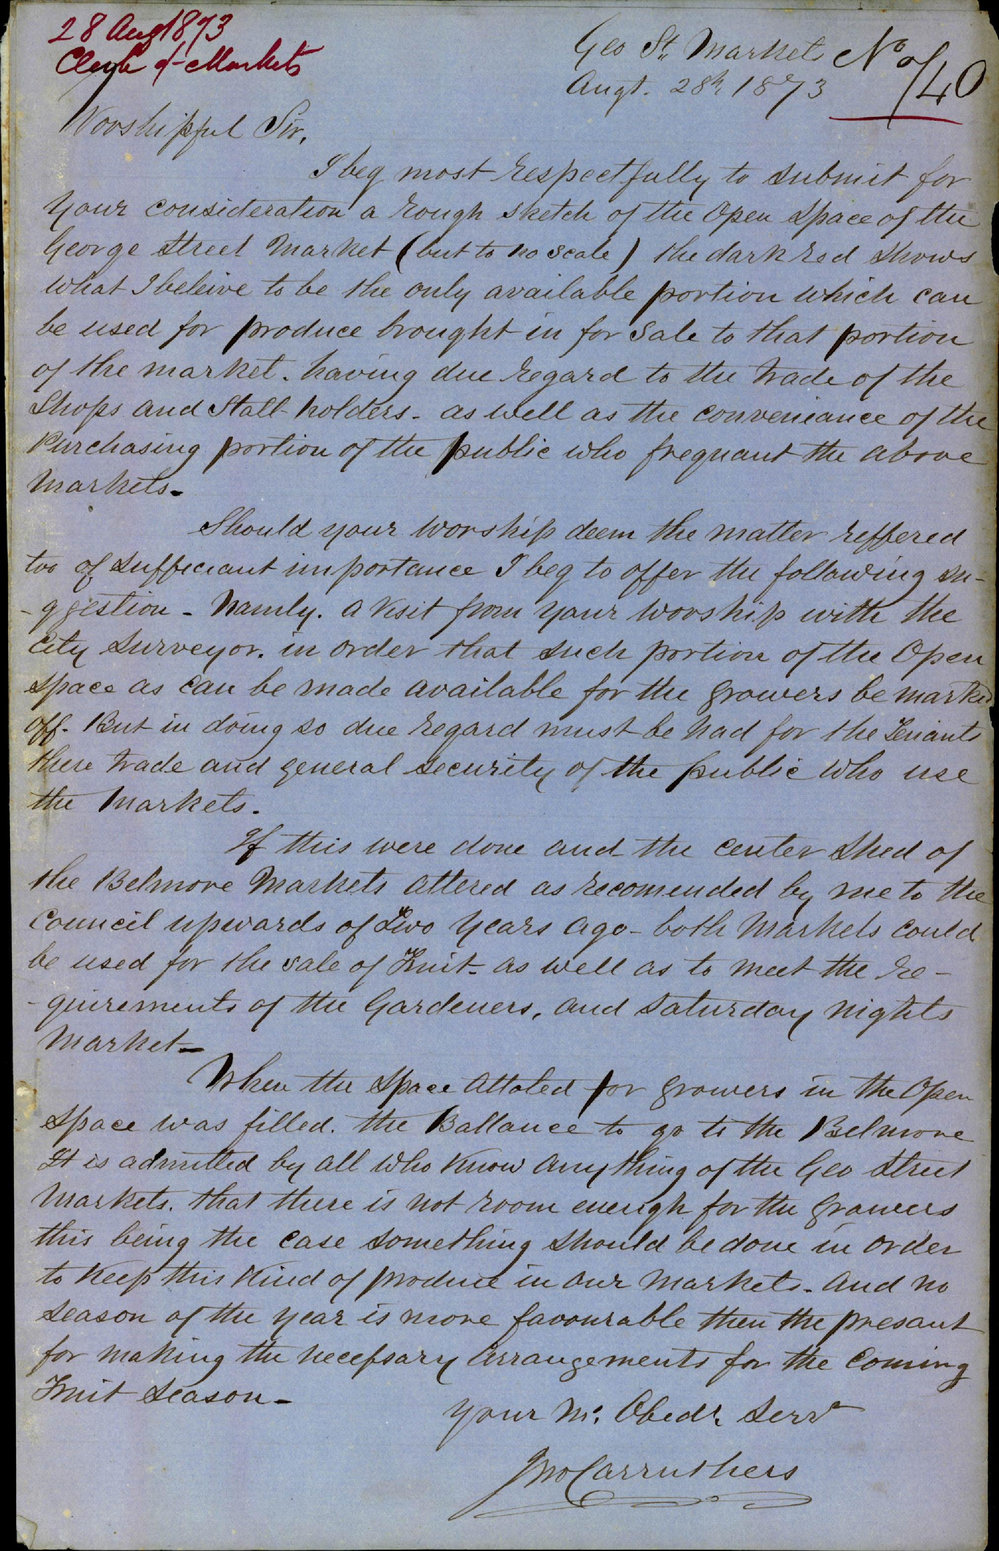 28 Aug 1873
Clerk of Markets
Geo St. Markets No 940
Augt. 28th 1873
Worshipful Sir,
I beg most respectfully to submit for
your consideration a rough sketch of the Open Space of the
George Street Market (but to no scale) the dark red shows
what I beleive to be the only available portion which can
be used for produce brought in for sale to that portion
of the market. having due regard to the trade of the
Shops and Stall holders - as well as the conveniance of the
Purchasing portion of the public who frequant the above
Markets -
Should your worship deem the matter reffered
too of sufficiant importance I beg to offer the following su-
-ggestion - Namly. a visit from your worship with the
City Surveyor. in order that such portion of the Open
space as can be made available for the growers be marked
off - But in doing so due regard must be had for the Tenants
there trade and general security of the public who use
the Markets.
If this were done and the center shed of
the Belmore Markets altered as recomended by me to the
Council upwards of Two years ago - both Markets could
be used for the sale of Fruit - as well as to meet the re-
-quirements of the Gardeners, and Saturday nights
Market -
When the space attoled for growers in the Open
space was filled. the Ballance to go to the Belmore
It is admitted by all who know anything of the Geo Street
Markets. that there is not room enough for the growers
this being the case something should be done in order
to keep this kind of produce in our markets - and no
season of the year is more favourable then the presant
for making the necessary arrangements for the coming
Fruit season -
Your Mt. Obedt. Servt
Jno Carruthers